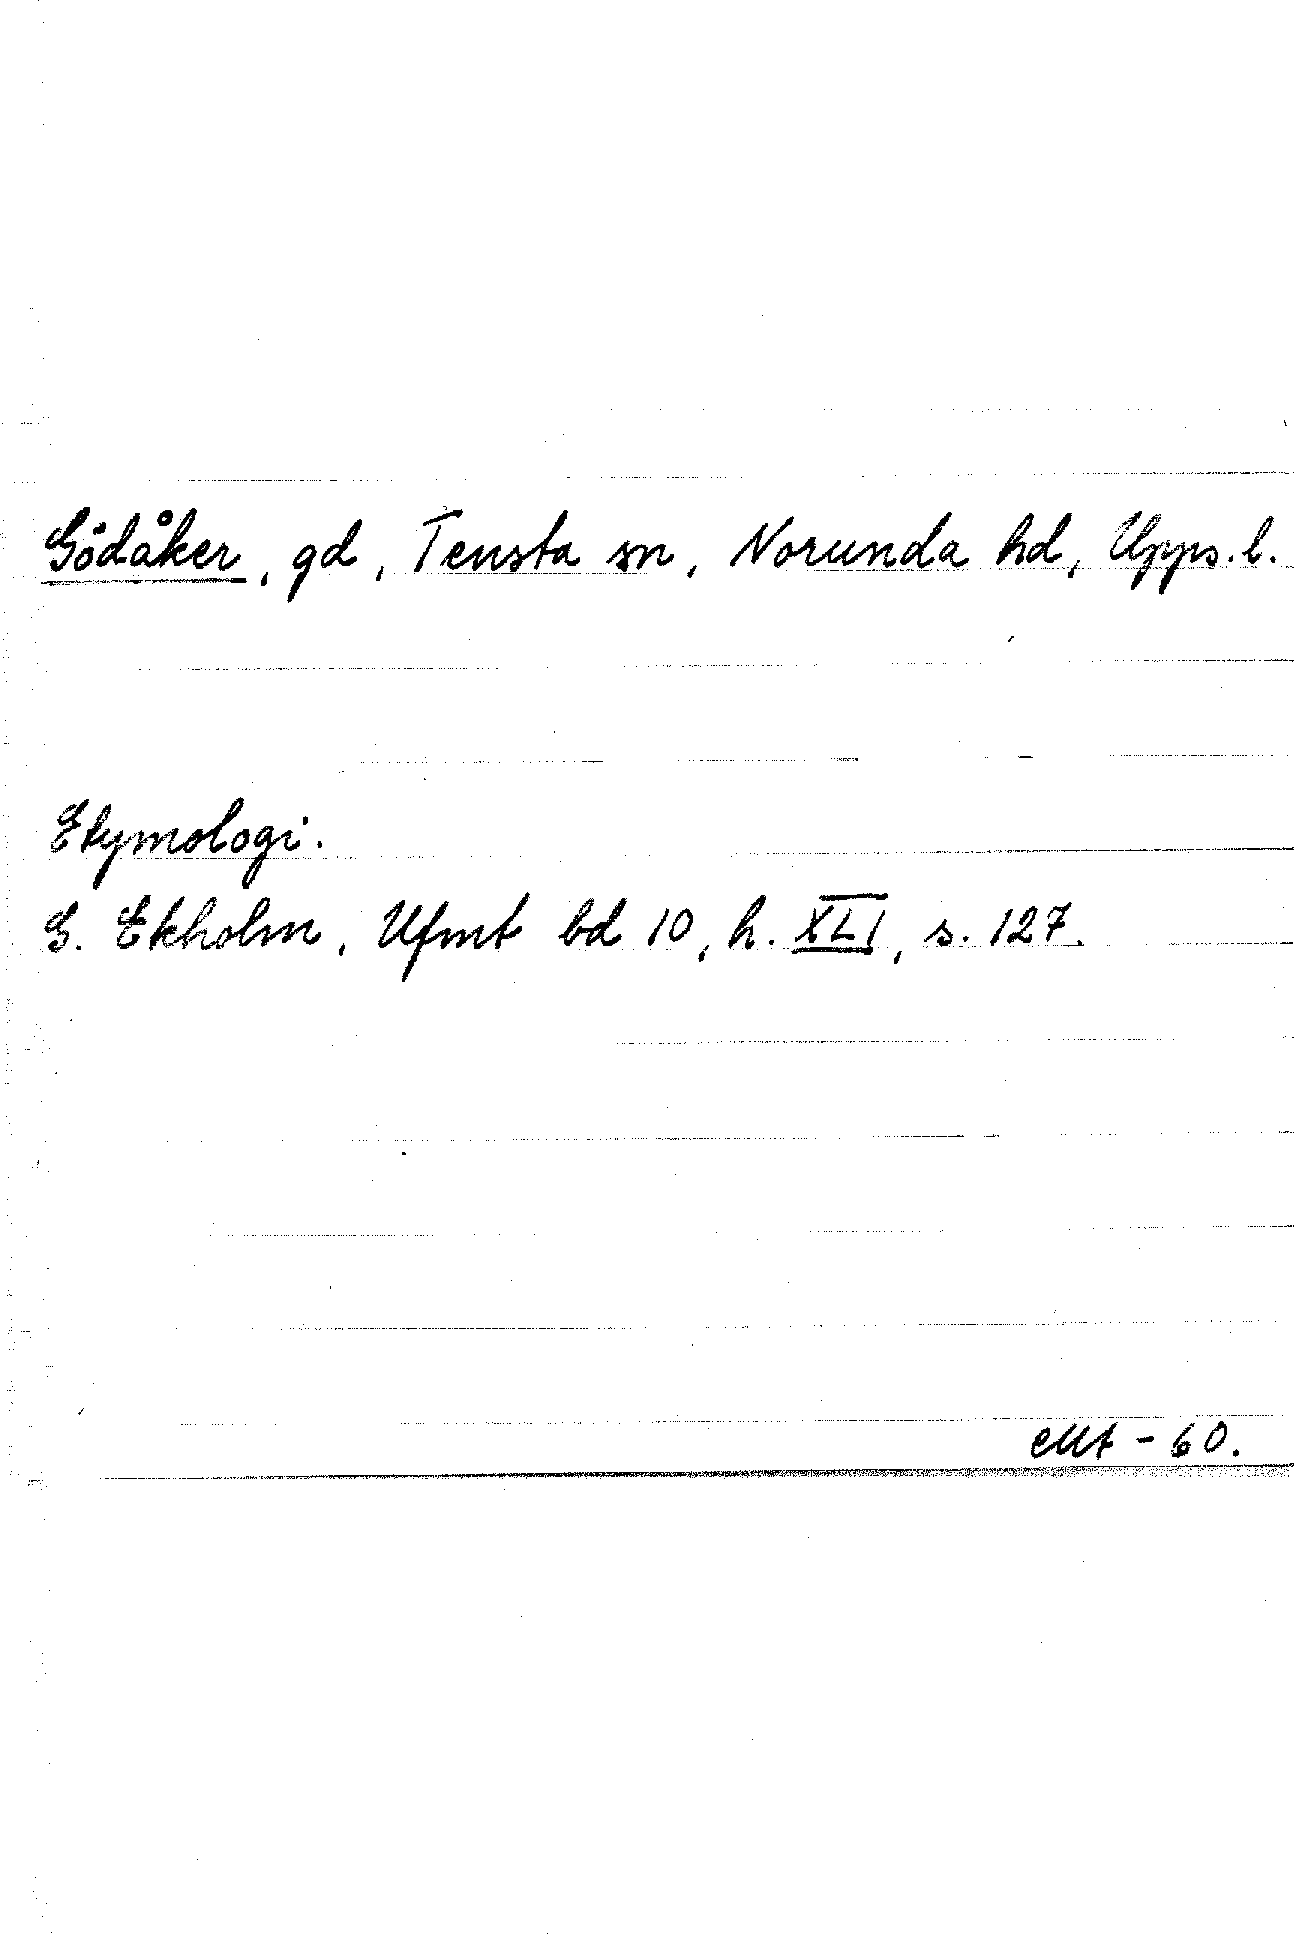 Gödåker, gd, Tensta sn, Norunda hd, Upps. l.
Etymologi.
G. Ekholm, Ufmt bd 10, h. XLI, s. 127.
- 60.